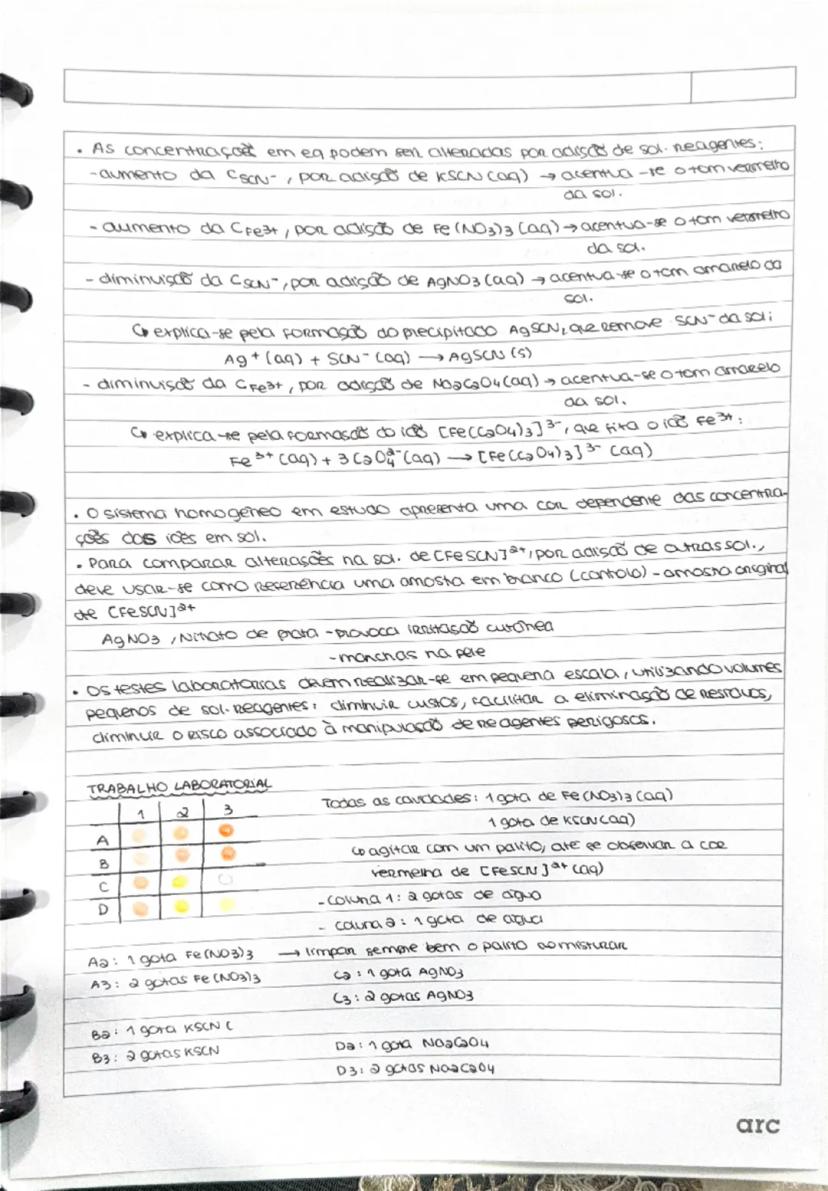 . As concentrações em eq podem ser alteradas por adição de sol. reagentes:
- aumento da CSCN-, por adição de KSCN (aq) → acentua-se o tom vermelho
da sol.
- aumento da CFe3+, por adição de Fe(NO3)3 (aq) → acentua-se o tom vermelho
da sol.
- diminuição da CSCN-, por adição de AgNO3 (aq) → acentua-se o tom amarelo da
sol.
↳ explica-se pela formação do precipitado AgSCN, que remove SCN- da sol:
Ag+ (aq) + SCN- (aq) → AgSCN (s)
- diminuição da CFe3+, por adição de Na2C2O4 (aq) → acentua-se o tom amarelo
da sol.
↳ explica-se pela formação do ião [Fe(C2O4)3]3-, que fixa o ião Fe3+:
Fe3+ (aq) + 3 C2O4 2- (aq) → [Fe(C2O4)3]3- (aq)
. O sistema homogéneo em estudo apresenta uma cor dependente das concentra-
ções dos iões em sol.
. Para comparar alterações na sol. de [FeSCN]2+, por adição de outras sol.,
deve usar-se como referência uma amostra em branco (controlo) - amostra original
de [FeSCN]2+
AgNO3, Nitrato de prata - provoca irritação cutânea
- manchas na pele
. Os testes laboratoriais devem realizar-se em pequena escala, utilizando volumes
pequenos de sol. reagentes: diminuir custos, facilitar a eliminação de resíduos,
diminuir o risco associado à manipulação de reagentes perigosos.
TRABALHO LABORATORIAL
Todas as cavidades: 1 gota de Fe(NO3)3 (aq)
1 2 3
1 gota de KSCN (aq)
A
↳ agitar com um palito, até se observar a cor
B
vermelha de [FeSCN]2+ (aq)
C
- coluna 1: 2 gotas de água
D
- coluna 2: 1 gota de água
A2: 1 gota Fe(NO3)3 → limpar sempre bem o palito ao misturar
A3: 2 gotas Fe(NO3)3
C2: 1 gota AgNO3
C3: 2 gotas AgNO3
B2: 1 gota KSCN (
B3: 2 gotas KSCN
D2: 1 gota Na2C2O4
D3: 2 gotas Na2C2O4
arc